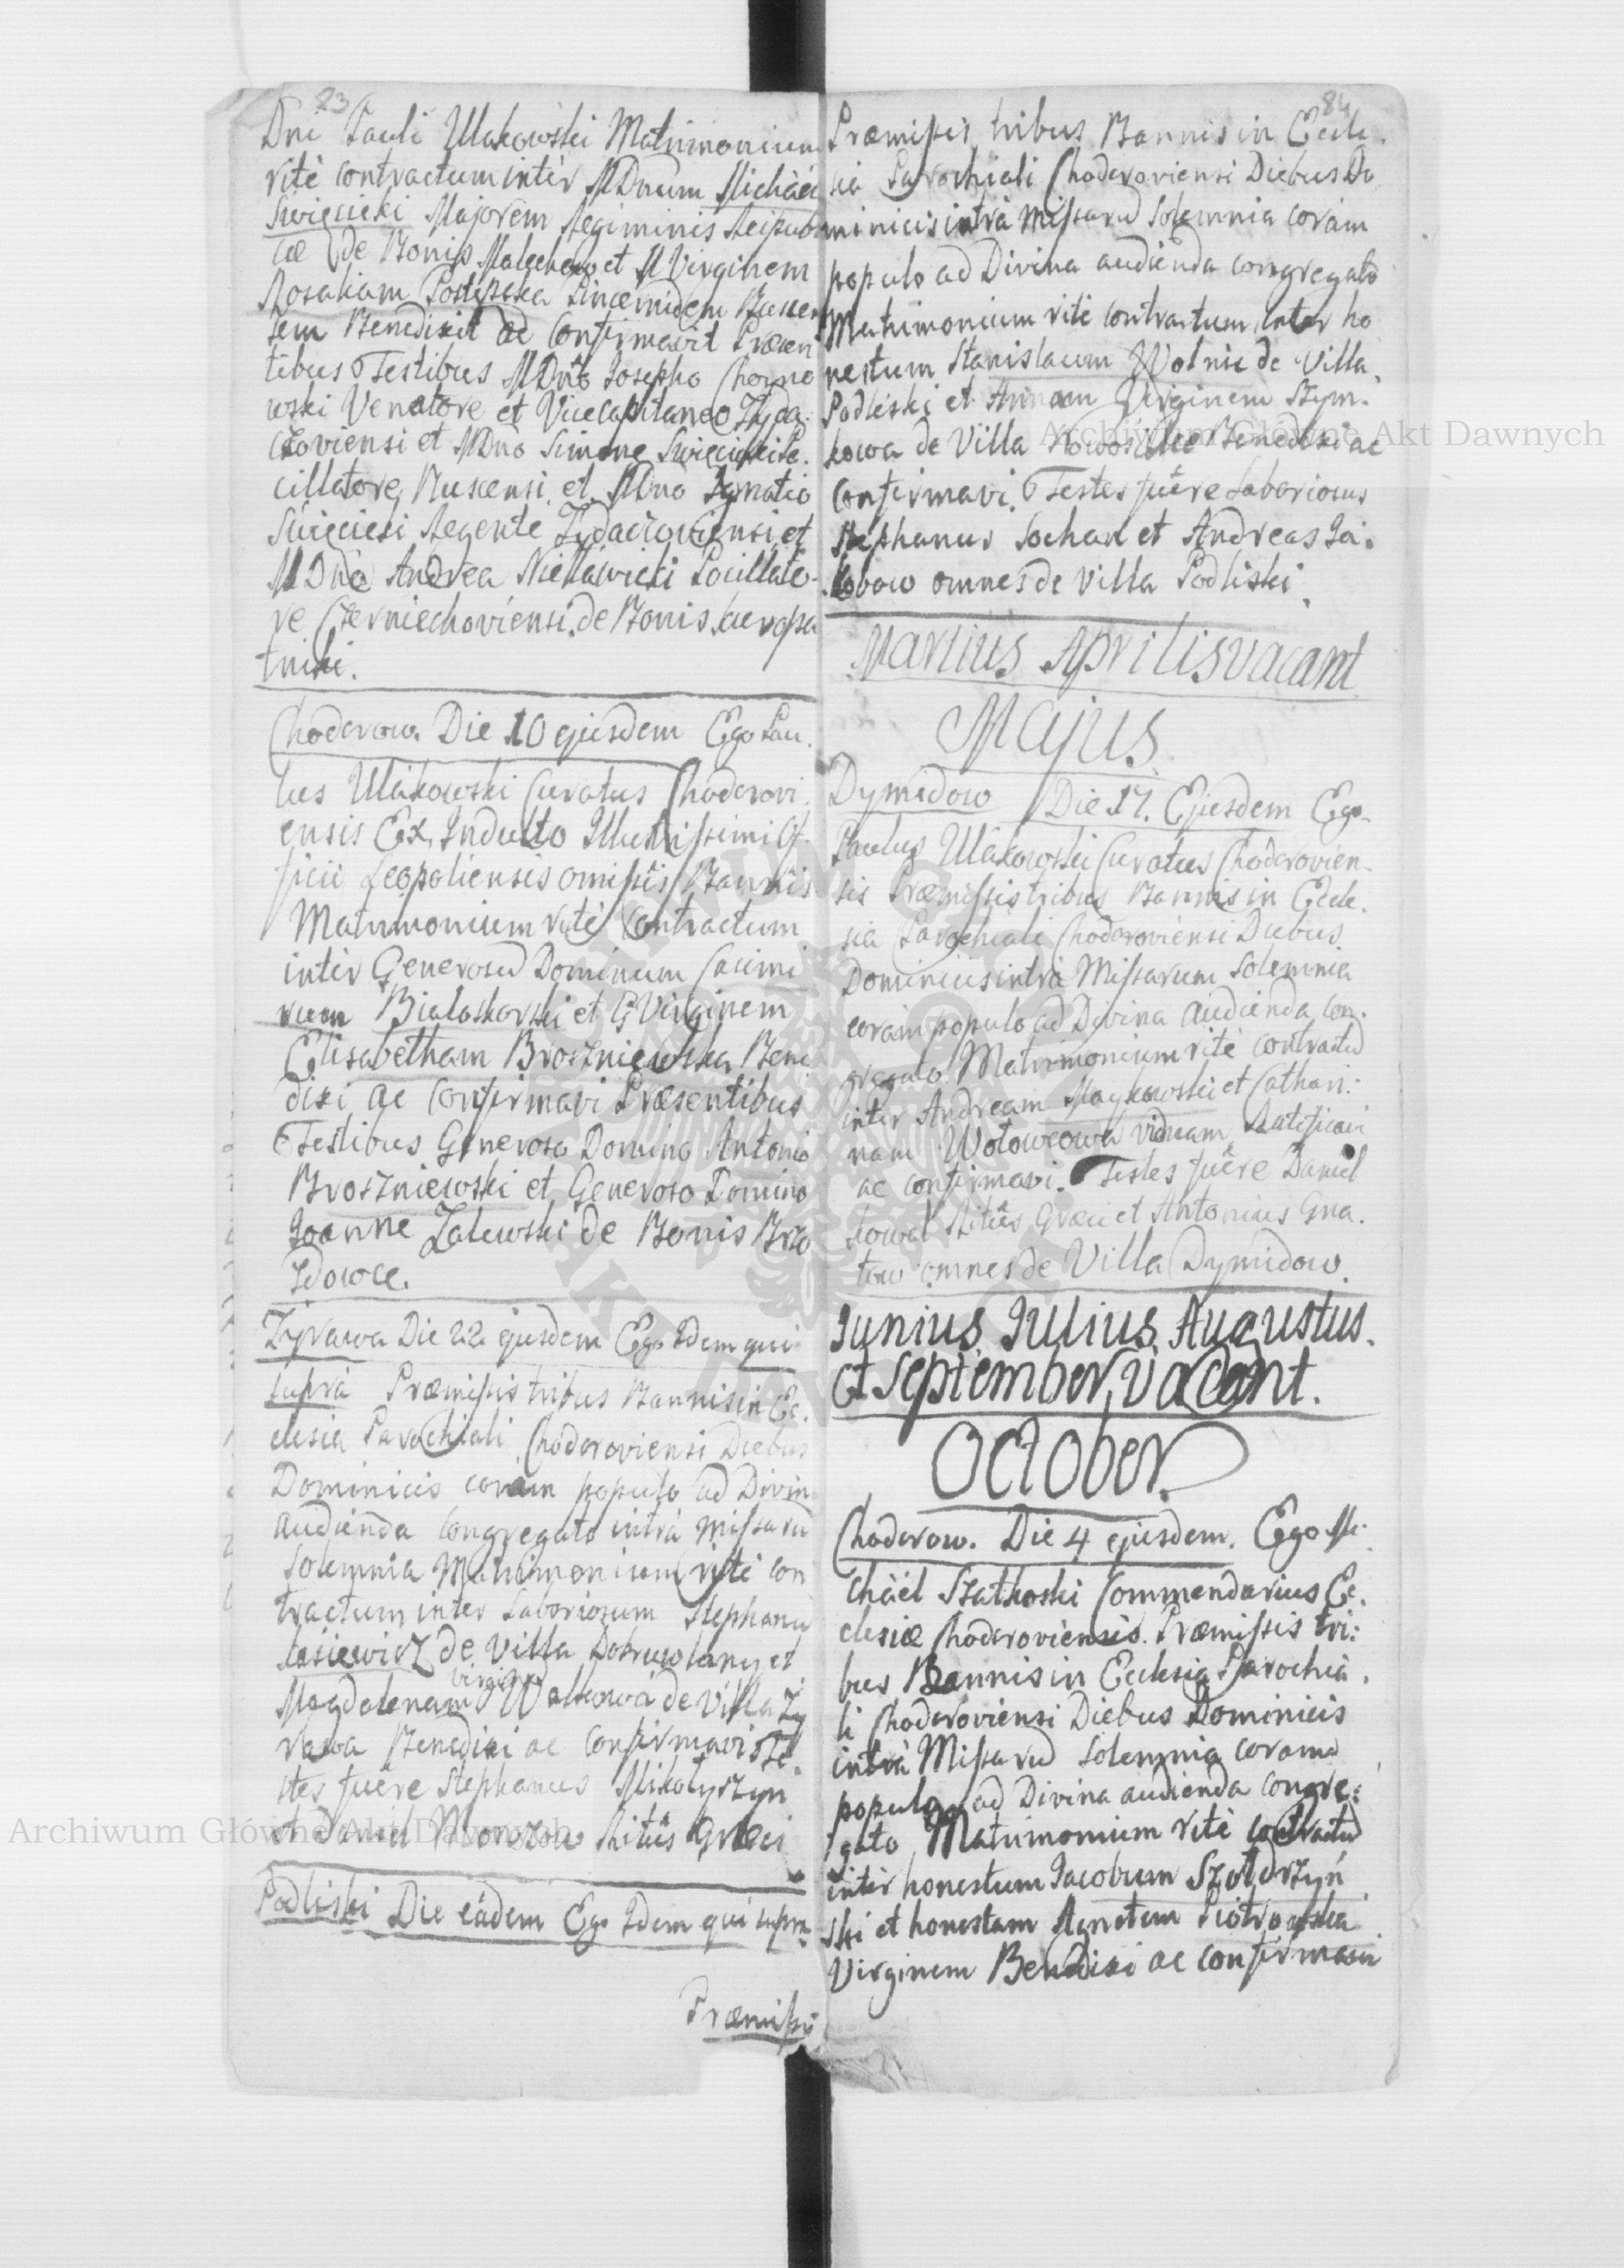 23
Dni Pauli Ulakowski Matrimonium
ritè contractum intèr MDnum Michäel
Swięcicki Majorem Regiminis Reipub
cæ de Bonis Malechow et M Virginem
Rosaliam Postępska Pincernidem Buscen
sem Benedixit ac Confirmavit Præsen
tibus Testibus MDno Josepho Choyno
wski Venatore et Vicecapitaneo Zyda.
czoviensi et MDno Simone Swięcicki Po.
cillatore Buscensi et MDno Ignatio
Swięcicki Regente Zydaczoviensi et
MDno Andrea Niesławicki Pocillato-
re Czerniechoviensi. de Bonis
tniki.
Chodorow. Die 10 ejusdem Ego Pau.
lus Ulakowski Curatus Chodorovi.
ensis Ex Indulto Illustrissimi Of.
ficii Leopoliensis omissis Bannis
Matrimonium ritè Contractum
intèr Generosũ Dominum Casimi
rum Białoskorski et G Virginem
Elisabetham Broszniewska Bene
dixi ac Confirmavi Præsentibus
Testibus Generoso Domino Antonio
Broszniewski et Generoso Domino
Joanne Zalewski de Bonis Brzo
zdowce.
Zyrawa Die 22 ejusdem Ego Idem qui
suprà Præmissis tribus Bannis in Ec.
clesia Parochiali Chodoroviensi Diebus
Dominicis coram populo ad Divin
audienda congregato intrà Missarũ
Solemnia Matrimonium ritè con
tractum inter Laboriosum Stephanũ
Lasiewicz de Villa Dobrowlany et
Magdalenam virginẽ Walkowa de Villa Zy
rawa Benedixi ac Confirmavi Te.
stes fuêre Stephanus Mikołyszyn
et Daniel Monszow Ritûs Græci
Podliski Die eâdem Ego Idem qui supra.
Præmissis
84
Præmissis tribus Bannis in Eccle.
sia Parochiali Chodoroviensi Diebus Do
minicis intrà Missarũ Solemnia coràm
populo ad Divina audienda congregato
Matrimonium ritè contractum inter ho
nestum Stanislaum Wolnie de Villa
Podliski et Annam Virginem Szym.
kowa de Villa Nowosielce Benedixi ac
Confirmavi. Testes fuêre Laboriosus
Stephanus Sochan et Andreas Ja.
kobow omnes de Villa Podliski.
Martius Aprilis vacant
Majus
Dymidow Die 17. Ejusdem Ego
Paulus Ulakowski Curatus Chodorovien-
sis Præmissis tribus Bannis in Eccle.
sia Parochiali Chodoroviensi Diebus
Dominicis intrà Missarum Solemnia
coràm populo ad Divina audienda con.
gregato Matrimonium ritè contractũ
inter Andream Maykowski et Cathari:
nam Wołowcowa viduam Ratificavi
ac confirmavi. Testes fuêre Daniel
Kowal Ritûs Græci et Antonius Gna.
tow omnes de Villa Dymidow.
Junius Julius Augustus.
et September, vacant.
October
Chodorow. Die 4 ejusdem. Ego Mi.
chäel Szatkoski Commendarius Ec.
clesiæ Chodoroviensis. Præmissis tri:
bus Bannis in Ecclesia Parochia.
li Chodoroviensi Diebus Dominicis
intrà Missarũ Solemnia coram
populo ad Divina audienda congre:
gato Matrimonium ritè contractũ
intèr honestum Jacobum Szołdrzyń
ski et honestam Agnetem Piotrowska
Virginem Benedixi ac confirmavi
Archiwum Główne Akt Dawnych
Archiwum Główne Akt Dawnych